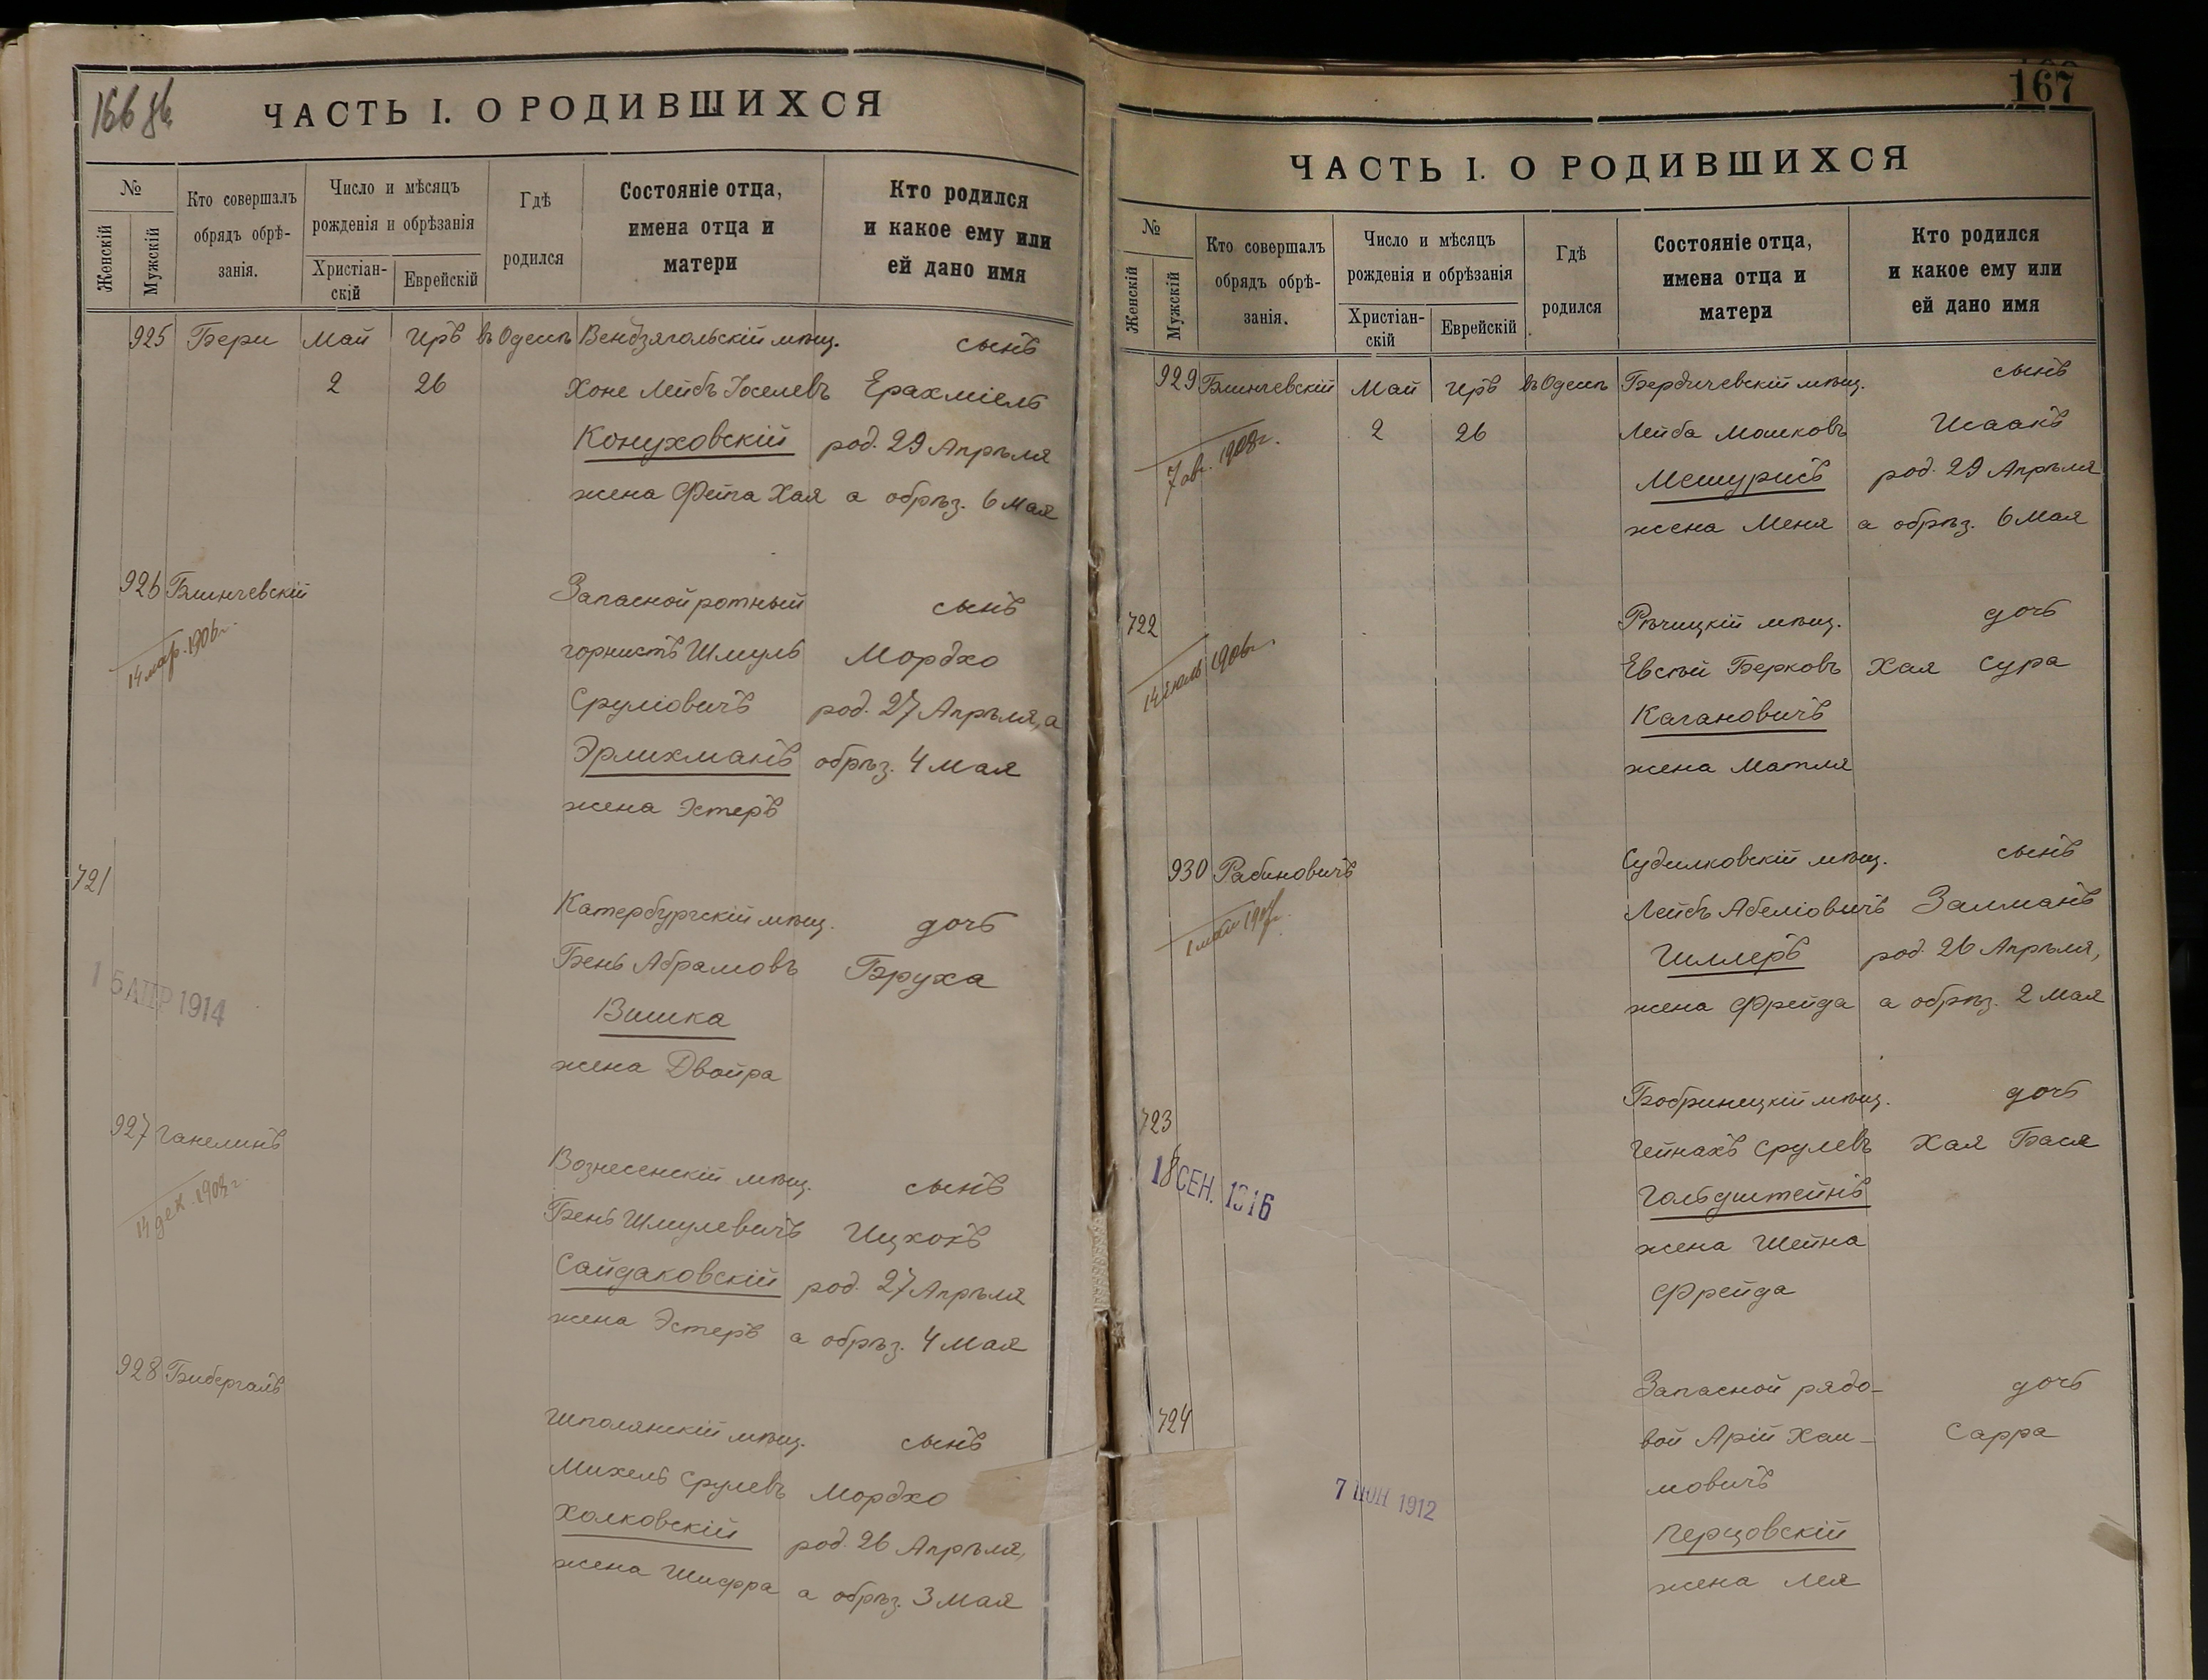 166 об.
ЧАСТЬ I. О РОДИВШИХСЯ
№
Женскій
Мужскій
Кто совершалъ
обрядъ обрѣ-
занія.
Число и мѣсяцъ
рожденія и обрѣзанія
Христіан-
скій
Еврейскій
Гдѣ
родился
Состояніе отца,
имена отца и
матери
Кто родился
и какое ему или
ей дано имя
925 Бери Май Иръ въ Одессѣ Вендзягольскій мѣщ. сынъ
2 26 Хоне Лейбъ Іоселевъ Ерахміель
Конуховскій род. 29 Апрѣля
жена Фейга Хая а обрѣз. 6 Мая
926 Блинчевскій Запасной ротный сынъ
14 мар. 1906г. горнистъ Шмуль Мордхо
Сруліовичъ род. 27 Апрѣля, а
Эрлихманъ обрѣз. 4 мая
жена Эстеръ
721 Катербургскій мѣщ. дочь
Бень Абрамовъ Бруха
16 АПР 1914
Вишка
жена Двойра
927 Ганелинъ Вознесенскій мѣщ. сынъ
14 дек. 1908г. Бень Шмулевичъ Ицхокъ
Сайдаковскій род. 27 Апрѣля
жена Эстеръ а обрѣз. 4 мая
928 Бибергалъ Шполянскій мѣщ. сынъ
Михель Срулевъ Мордхо
Холковскій род. 26 Апрѣля,
жена Шифра а обрѣз. 3 мая
167
ЧАСТЬ I. О РОДИВШИХСЯ
№
Женскій
Мужскій
Кто совершалъ
обрядъ обрѣ-
занія.
Число и мѣсяцъ
рожденія и обрѣзанія
Христіан-
скій
Еврейскій
Гдѣ
родился
Состояніе отца,
имена отца и
матери
Кто родился
и какое ему или
ей дано имя
929 Блинчевскій Май Иръ въ Одессѣ Бердичевскій мѣщ. сынъ
7 ав. 1908г. 2 26 Лейба Мошковъ Исаакъ
Мешурисъ род. 29 Апрѣля
жена Меня а обрѣз. 6 Мая
722 Рѣчицкій мѣщ. дочь
14 іюль 1906г. Евсѣй Берковъ Хая Сура
Кагановичъ
жена Матля
930 Рабиновичъ Судилковскій мѣщ. сынъ
Лейбъ Абеліовичъ Залманъ
Шллеръ род. 26 Апрѣля,
жена Фрейда а обрѣз. 2 Мая
723 Бобринецкій мѣщ. дочь
Гейнахъ Срулевъ Хая Бася
18 СЕН. 1916
Гольдштейнъ
жена Шейна
Фрейда
724 Запасной рядо-
дочь
вой Арій Хаи-
Сарра
7 ІЮН 1912
мовичъ
Перцовскій
жена Лея